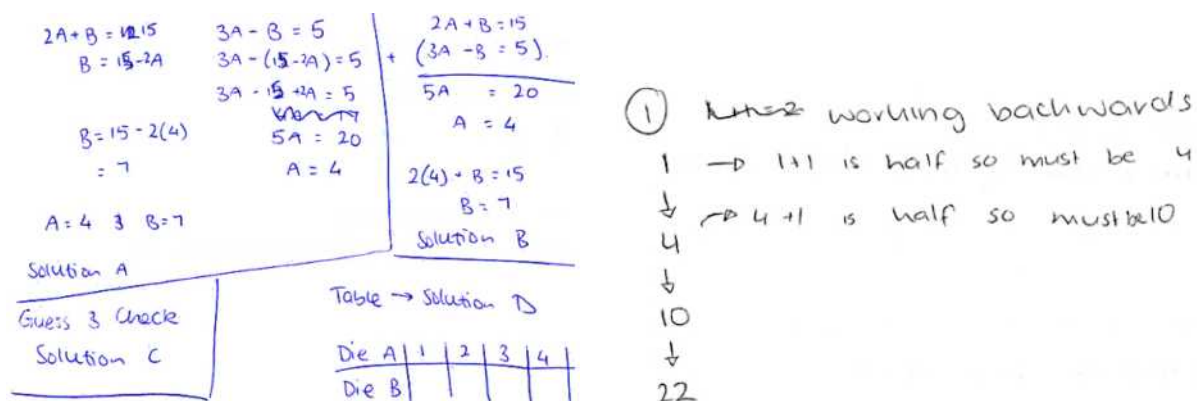 2A + B = 15
B = 15-2A
B = 15 - 2(4)
= 7
A = 4 & B = 7
Solution A
3A - B = 5
3A - (15-2A) = 5
3A - 15 + 2A = 5
5A = 20
A = 4
2A + B = 15
+ (3A - B = 5).
5A = 20
A = 4
2(4) + B = 15
B = 7
Solution B
Guess & Check
Solution C
Table → Solution D
Die A 1 2 3 4
Die B
① working backwards
1 → 1+1 is half so must be 4
↓ → 4 +1 is half so must be 10
4
↓
10
↓
22